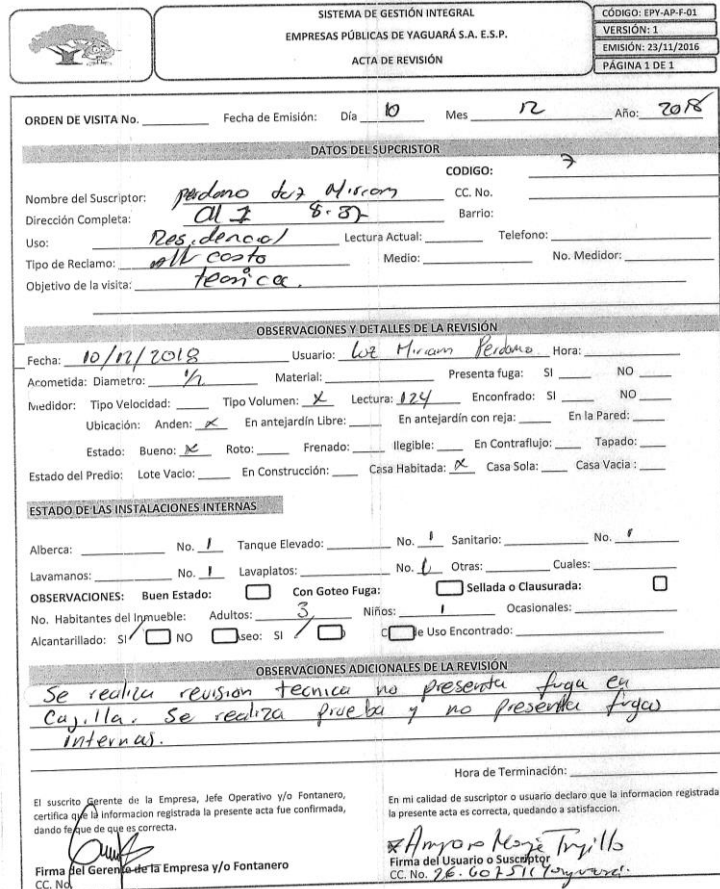 SISTEMA DE GESTIÓN INTEGRAL
EMPRESAS PÚBLICAS DE YAGUARÁ S.A. E.S.P.
ACTA DE REVISIÓN
CÓDIGO: EPY-AP-F-01
VERSIÓN: 1
EMISIÓN: 23/11/2016
PÁGINA 1 DE 1
ORDEN DE VISITA No. Fecha de Emisión: Día 10 Mes 12 Año: 2018
DATOS DEL SUPCRISTOR
CODIGO: 7
Nombre del Suscriptor: perdomo luz Miriam CC. No.
Dirección Completa: Cll 7 8-37 Barrio:
Uso: Residencial Lectura Actual: Telefono:
Tipo de Reclamo: alto costo Medio: No. Medidor:
Objetivo de la visita: tecnica.
OBSERVACIONES Y DETALLES DE LA REVISIÓN
Fecha: 10/12/2018 Usuario: Luz Miriam Perdomo Hora:
Acometida: Diametro: 1/2 Material: Presenta fuga: SI NO
Medidor: Tipo Velocidad: Tipo Volumen: X Lectura: 124 Enconfrado: SI NO
Ubicación: Anden: X En antejardín Libre: En antejardín con reja: En la Pared:
Estado: Bueno: X Roto: Frenado: Ilegible: En Contraflujo: Tapado:
Estado del Predio: Lote Vacio: En Construcción: Casa Habitada: X Casa Sola: Casa Vacia :
ESTADO DE LAS INSTALACIONES INTERNAS
Alberca: No. 1 Tanque Elevado: No. 1 Sanitario: No. 1
Lavamanos: No. 1 Lavaplatos: No. 1 Otras: Cuales:
OBSERVACIONES: Buen Estado: Con Goteo Fuga: Sellada o Clausurada:
No. Habitantes del Inmueble: Adultos: 3 Niños: 1 Ocasionales:
Alcantarillado: SI / NO Aseo: SI / de Uso Encontrado:
OBSERVACIONES ADICIONALES DE LA REVISIÓN
Se realiza revision tecnica no presenta fuga en
Cajilla. Se realiza prueba y no presenta fugas
internas.
Hora de Terminación:
El suscrito Gerente de la Empresa, Jefe Operativo y/o Fontanero,
certifica que la informacion registrada la presente acta fue confirmada,
dando fe que de que es correcta.
Firma del Gerente de la Empresa y/o Fontanero
CC. No.
En mi calidad de suscriptor o usuario declaro que la informacion registrada
la presente acta es correcta, quedando a satisfaccion.
Trujillo
Firma del Usuario o Suscriptor
CC. No. 26.607511 Yaguará.